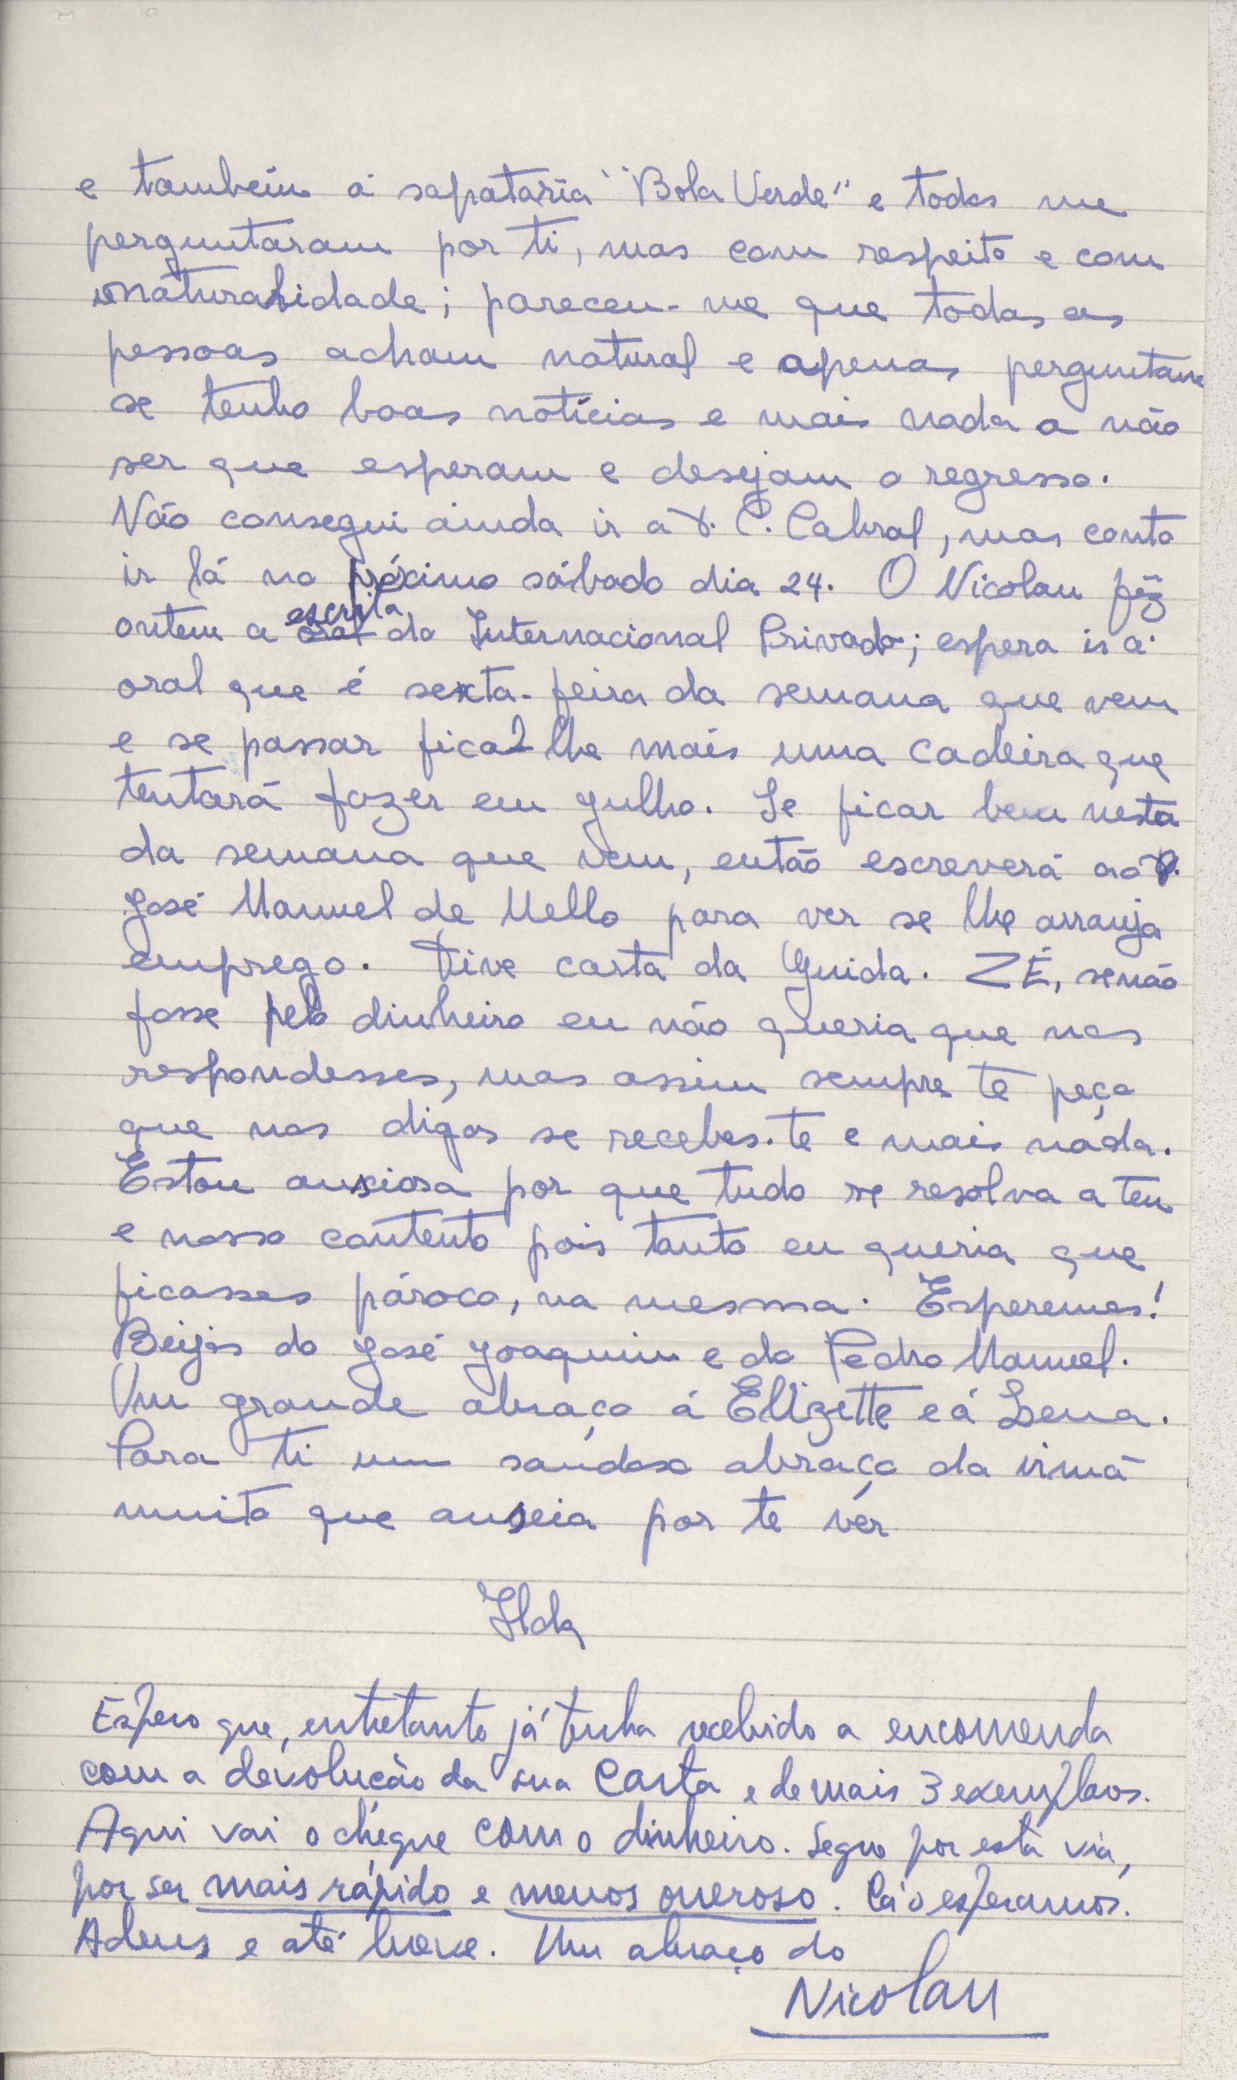 e também à sapataria "Bola Verde" e todos me
perguntaram por ti, mas com respeito e com
naturalidade; pareceu-me que todas as
pessoas acham natural e apenas perguntam
se tenho boas notícias e mais nada a não
ser que esperam e desejam o regresso.
Não consegui ainda ir a D. C. Cabral, mas conto
ir lá no próximo sábado dia 24. O Nicolau fêz
ontem a oral escrita do Internacional Privado; espera ir à
oral que é sexta-feira da semana que vem
e se passar fica-lhe mais uma cadeira que
tentará fazer em Julho. Se ficar bem nesta
da semana que vem, então escreverá ao D.
José Manuel de Mello para ver se lhe arranja
emprego. Tive carta da Guida. ZÉ, senão
fosse pelo dinheiro eu não queria que nos
respondesses, mas assim sempre te peço
que nos digas se recebes-te e mais nada.
Estou anxiosa por que tudo se resolva a teu
e nosso contento pois tanto eu queria que
ficasses pároco, na mesma. Esperemos!
Beijos do José Joaquim e do Pedro Manuel.
Um grande abraço á Elizette e á Lena.
Para ti um saudoso abraço da irmã
muito que anseia por te vêr
Ilda
Espero que, entretanto já tenha recebido a encomenda
com a devolução da sua Carta e de mais 3 exemplares.
Aqui vai o chéque com o dinheiro. Segue por esta via,
por ser mais rápido e menos oneroso. Cá o esperamos.
Adeus e até breve. Um abraço do
Nicolau